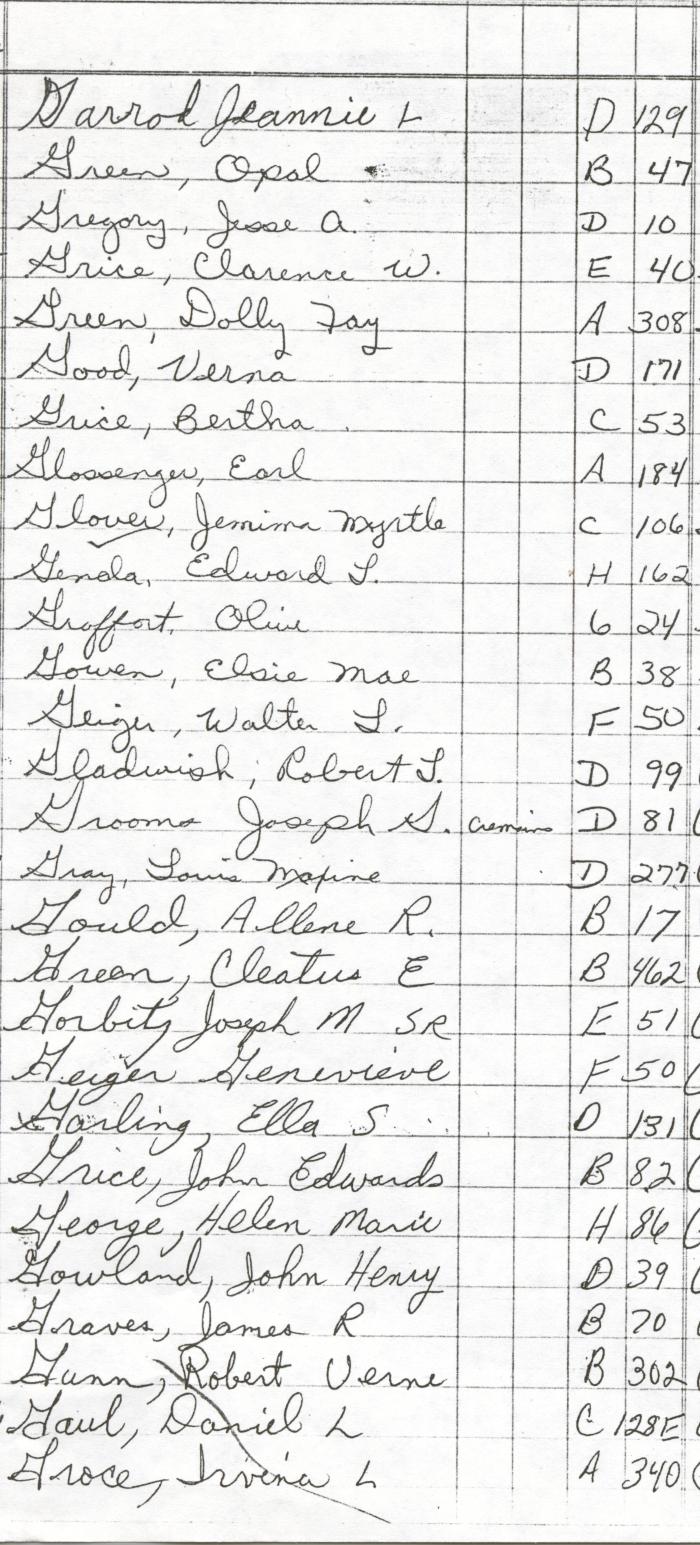 Garrod Jeannie L D 129
Green, Opal B 47
Gregory, Jesse A. D 10
Grice, Clarence W. E 40
Green, Dolly Fay A 308
Good, Verna D 171
Grice, Bertha C 53
Glossenger, Earl A 184
Glover, Jemima Myrtle C 106
Genda, Edward L. H 162
Graffort, Olive G 24
Gowen, Elsie Mae B 38
Geiger, Walter L. F 50
Gladwish, Robert L. D 99
Grooms Joseph G. cremains D 81
Gray, Louis Maxine D 277
Gould, Allene R. B 17
Green, Cleatus E B 462
Gorbitz Joseph M SR E 51
Geiger Genevieve F 50
Garling, Ella S D 131
Grice, John Edwards B 82
George, Helen Marie H 86
Gowland, John Henry D 39
Graves, James R B 70
Gunn, Robert Verne B 302
Gaul, Daniel L C 128E
Groce, Irvina L A 340